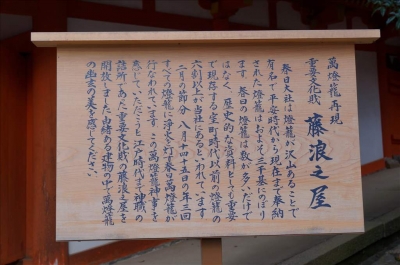 萬燈籠再現
重要文化財 藤浪之屋
春日大社は燈籠が沢山あることで
有名で平安時代から現在まで奉納
された燈籠はおよそ三千基にのぼり
ます。春日の燈籠は数が多いだけで
はなく、歴史的な資料としても重要
で現存する室町時代以前の燈籠の
六割以上が当社にあるといわれています。
二月の節分、八月十四・十五日の年三回
すべての燈籠に浄火を灯す春日萬燈籠が
行なわれています。この萬燈籠神事を
感じていただこうと江戸時代まで神職の
詰所であった重要文化財の藤浪之屋を
開放しました由緒ある建物の中で萬燈籠
の幽玄の美を感じてください。